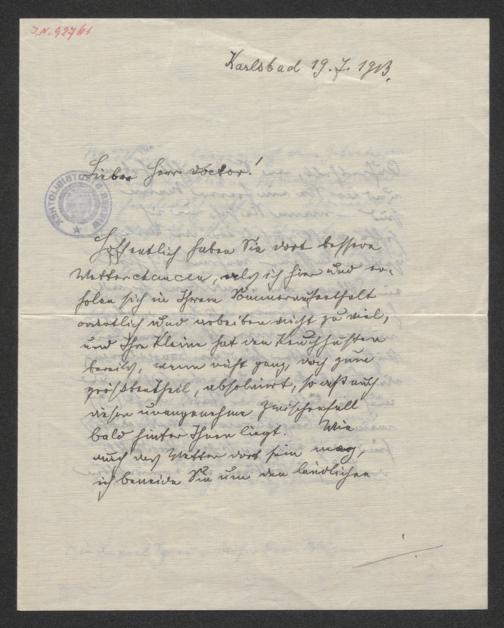 I.N. 92761
Karlsbad 19. 7. 1913.
Lieber Herr Doctor!
Hoffentlich haben Sie dort bessere
Wetterchancen, als ich hier und er-
holen sich in Ihrem Sommeraufenthalt
ordentlich und arbeiten nicht zu viel,
und Ihr Kleine hat den Keuchhusten
bereits, wenn nicht ganz, doch zum
größten Theil, absolvirt, so daß auch
dieser unangenehme Zwischenfall
bald hinter Ihnen liegt. Wie
auch das Wetter dort sein mag,
ich beneide Sie um den ländlichen